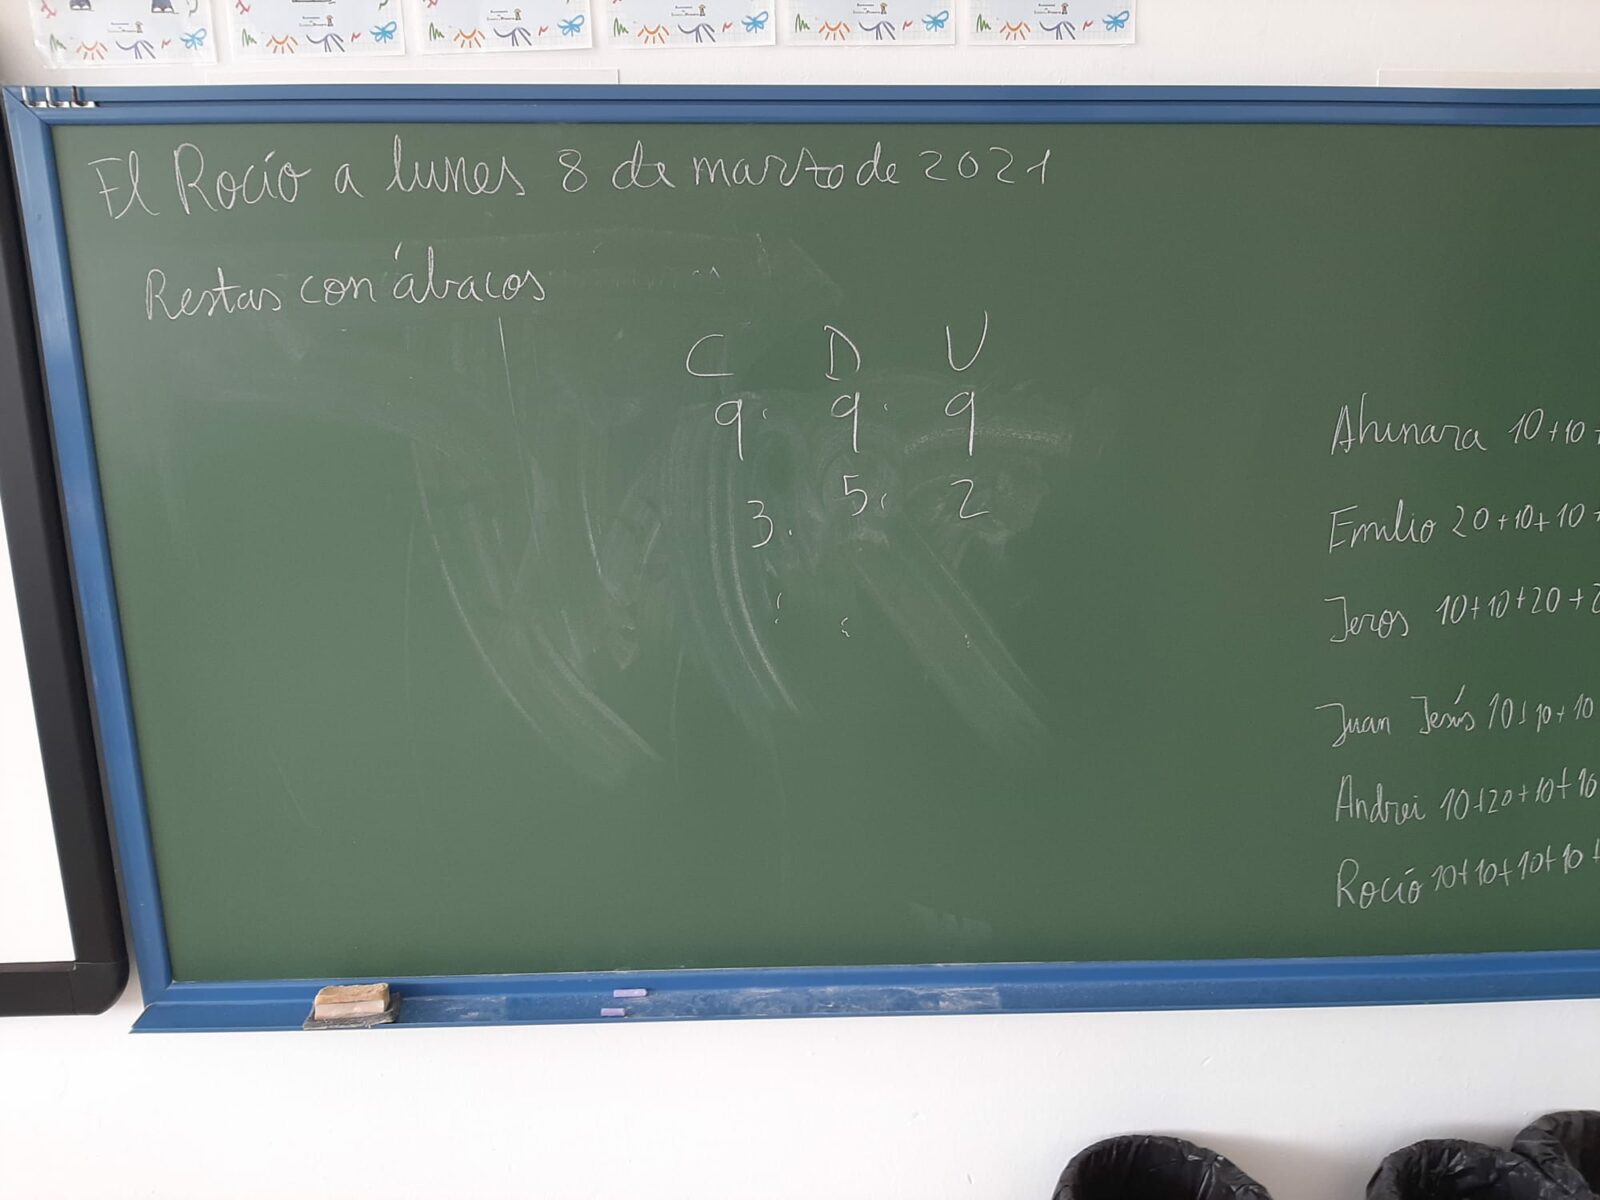 El Rocío a lunes 8 de marzo de 2021
Restas con ábacos
C D U
9. 9. 9
3. 5. 2
Ahinara 10+10+
Emilio 20+10+10+
Jeros 10+10+20+2
Juan Jesús 10+10+10
Andrei 10+20+10+10
Rocío 10+10+10+10+